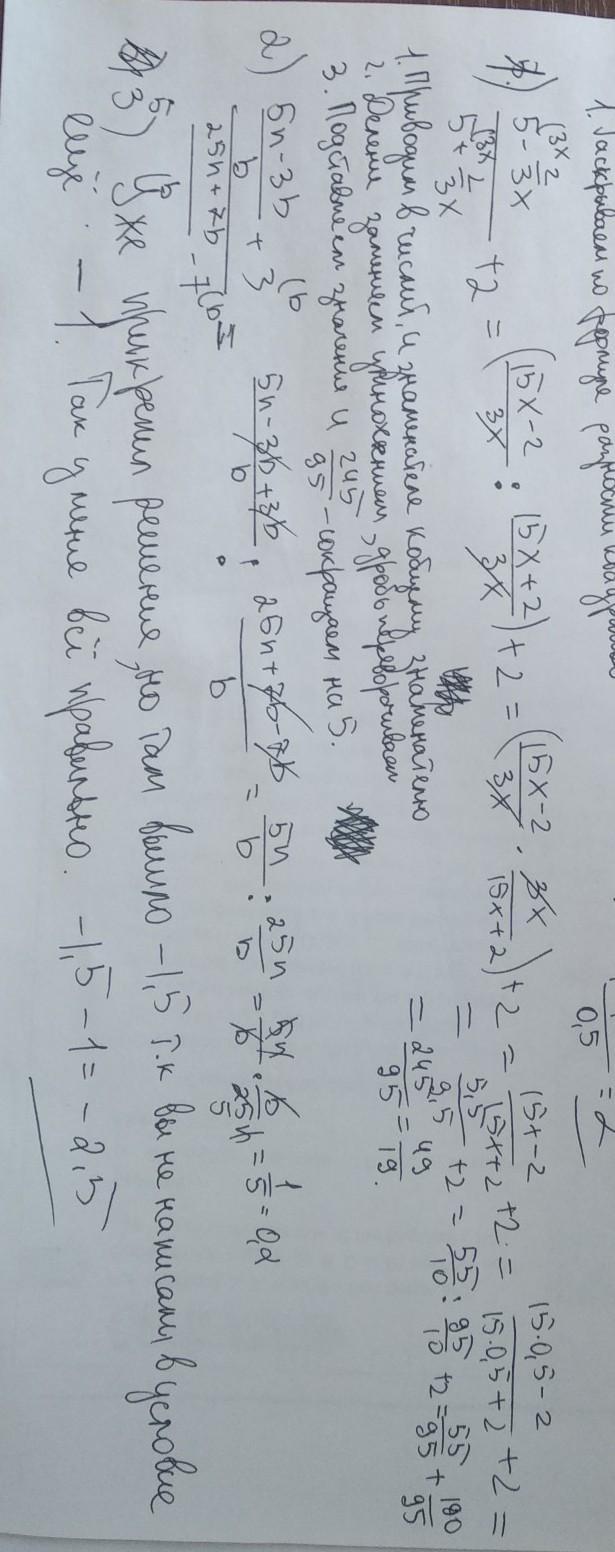 1. Раскрываем по формуле разности
1) (5 - 2/3x) / (5 + 2/3x) + 2 = ((15x-2)/3x : (15x+2)/3x) + 2 = ((15x-2)/3x · 3x/(15x+2)) + 2 = (15x-2)/(15x+2) + 2 = (15·0,5-2)/(15·0,5+2) + 2 =
0,5 = 2
= 5,5/9,5 + 2 = 55/10 : 95/10 + 2 = 55/95 + 190/95
= 245/95 = 49/19.
1. Приводим в числит. и знаменателе к общему знаменателю
2. Деление заменяем умножением, дробь переворачиваем
3. Подставляем значения и 245/95 - сокращаем на 5.
2) ((5n-3b)/b + 3) / ((25n+7b)/b - 7) = (5n-3b+3b)/b : (25n+7b-7b)/b = 5n/b : 25n/b = 5n/b · b/25n = 1/5 = 0,2
3) Уже прикрепил решение, но там вышло -1,5 т.к вы не написали в условие
ещё - 1. Так у меня всё правильно. -1,5 - 1 = -2,5